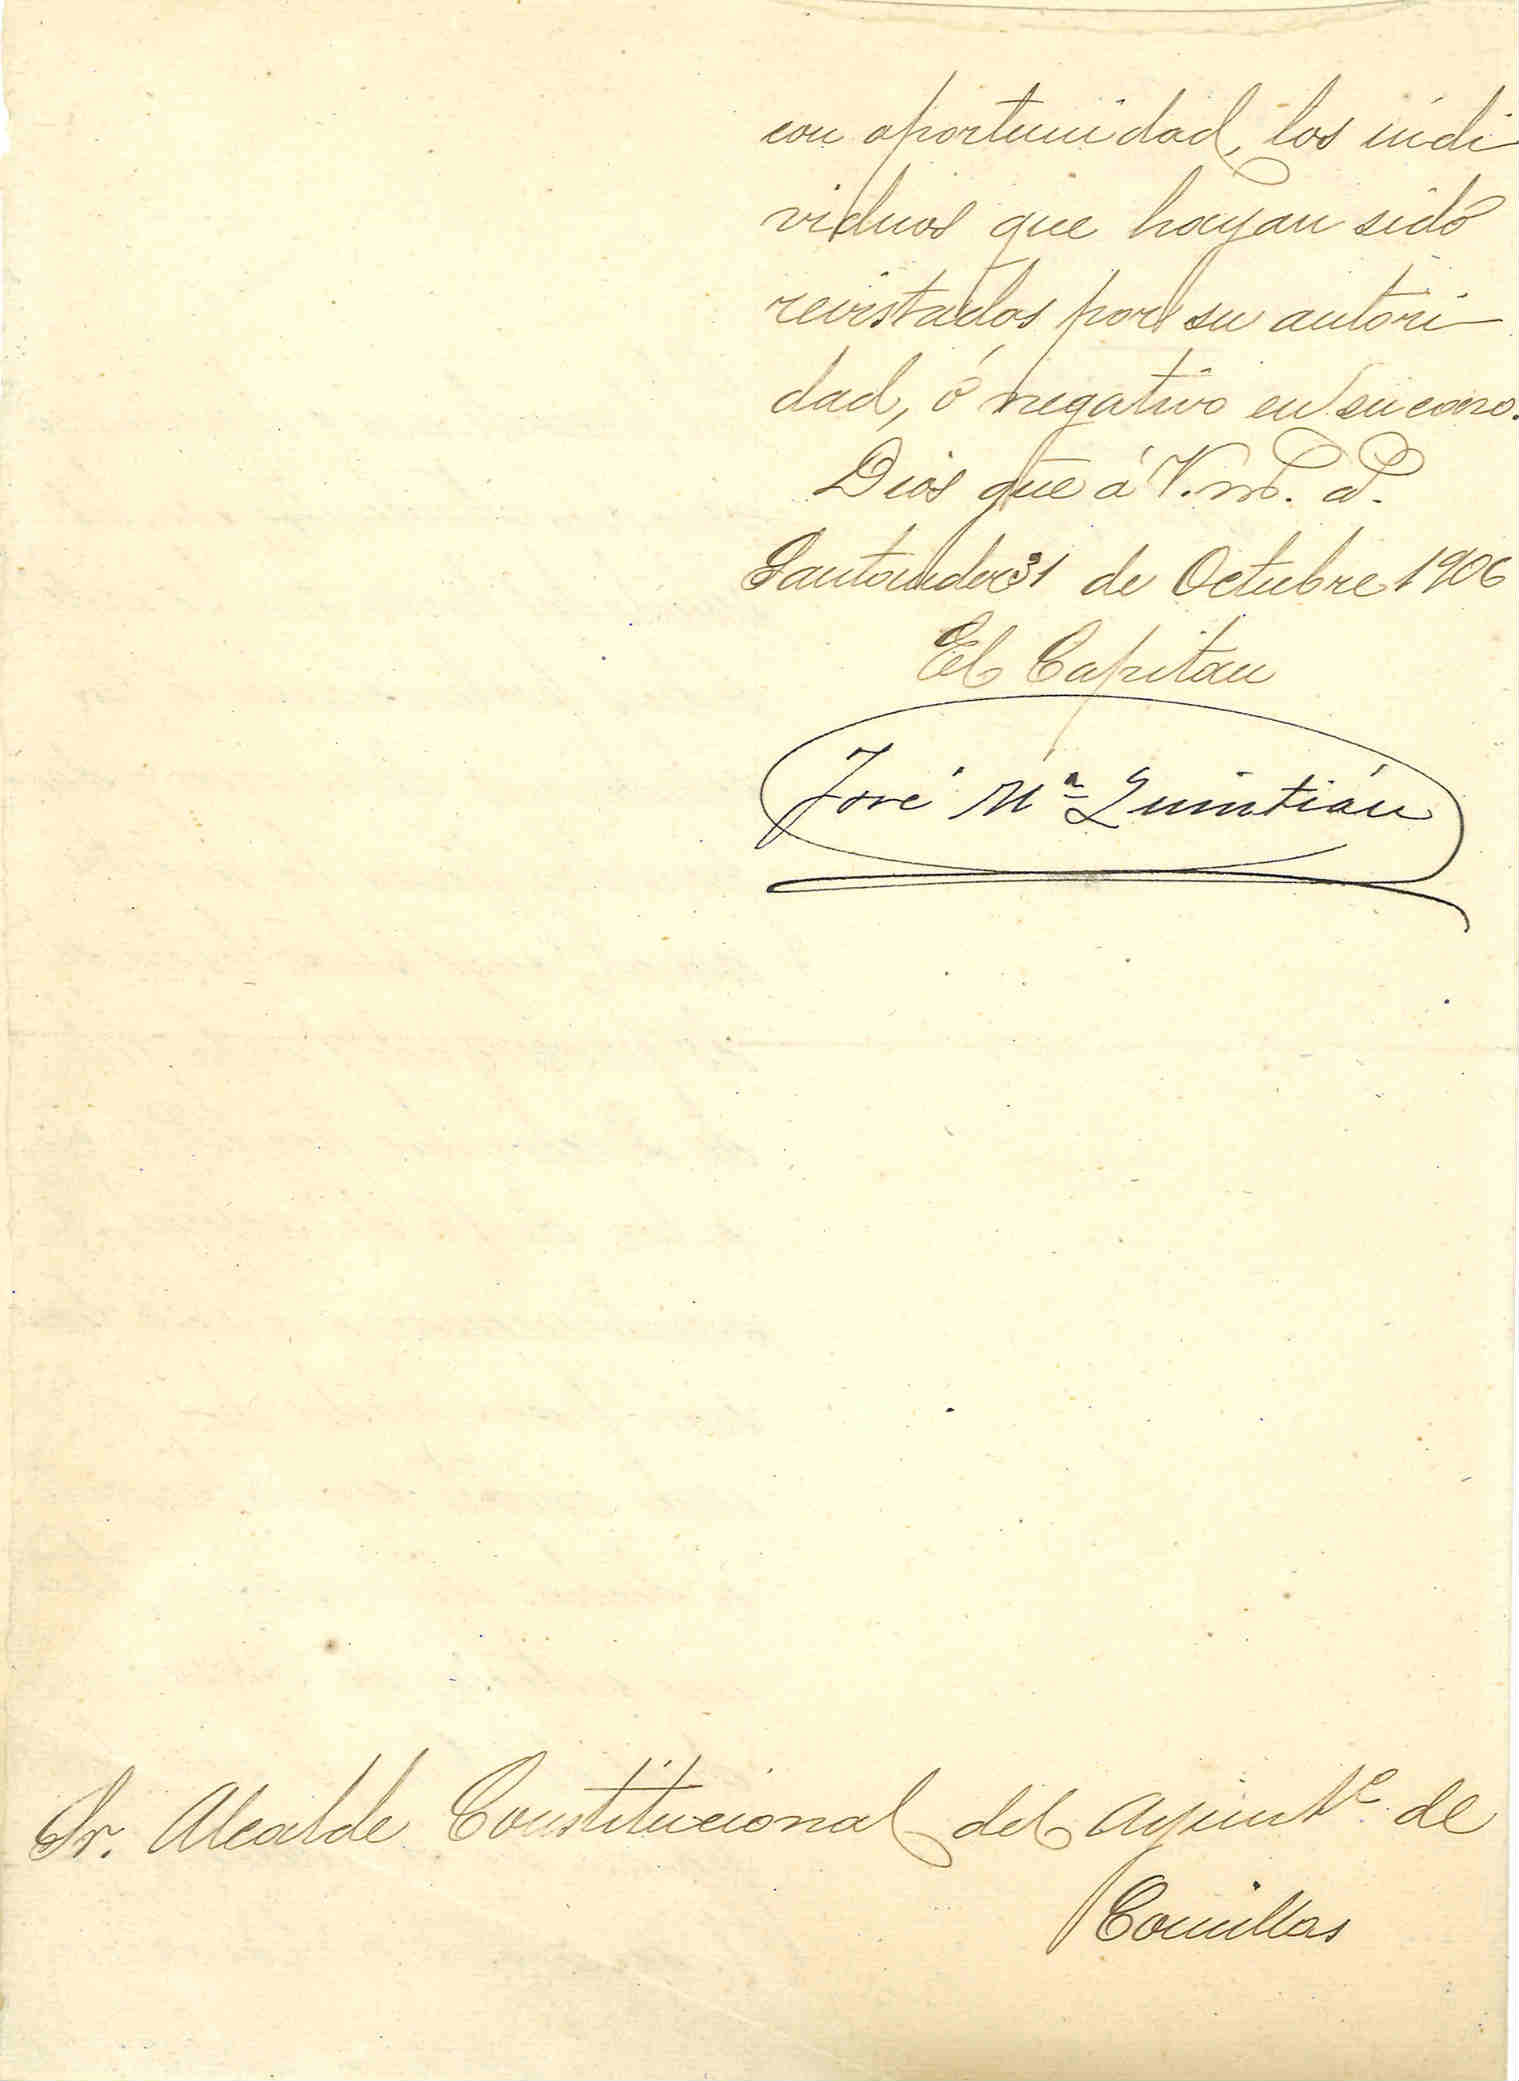 con oportunidad, los indi
viduos que hayan sido
revistados por su autori-
dad, ó negativo en su caso.
Dios gue á V. m. a.
Santander 31 de Octubre 1906
El Capitan
José Mª Quintián
Sr. Alcalde Constitucional del Ayuntº de
Comillas